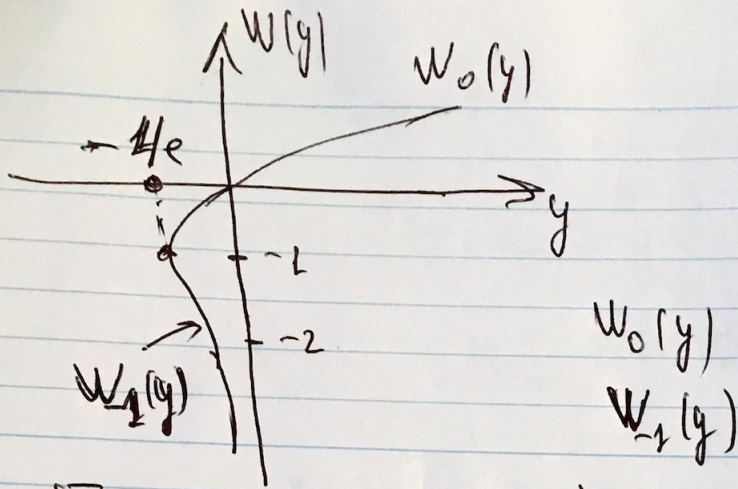 W(y)
W₀(y)
- 1/e
y
-1
-2
W₀(y)
W₋₁(y)
W₋₁(y)